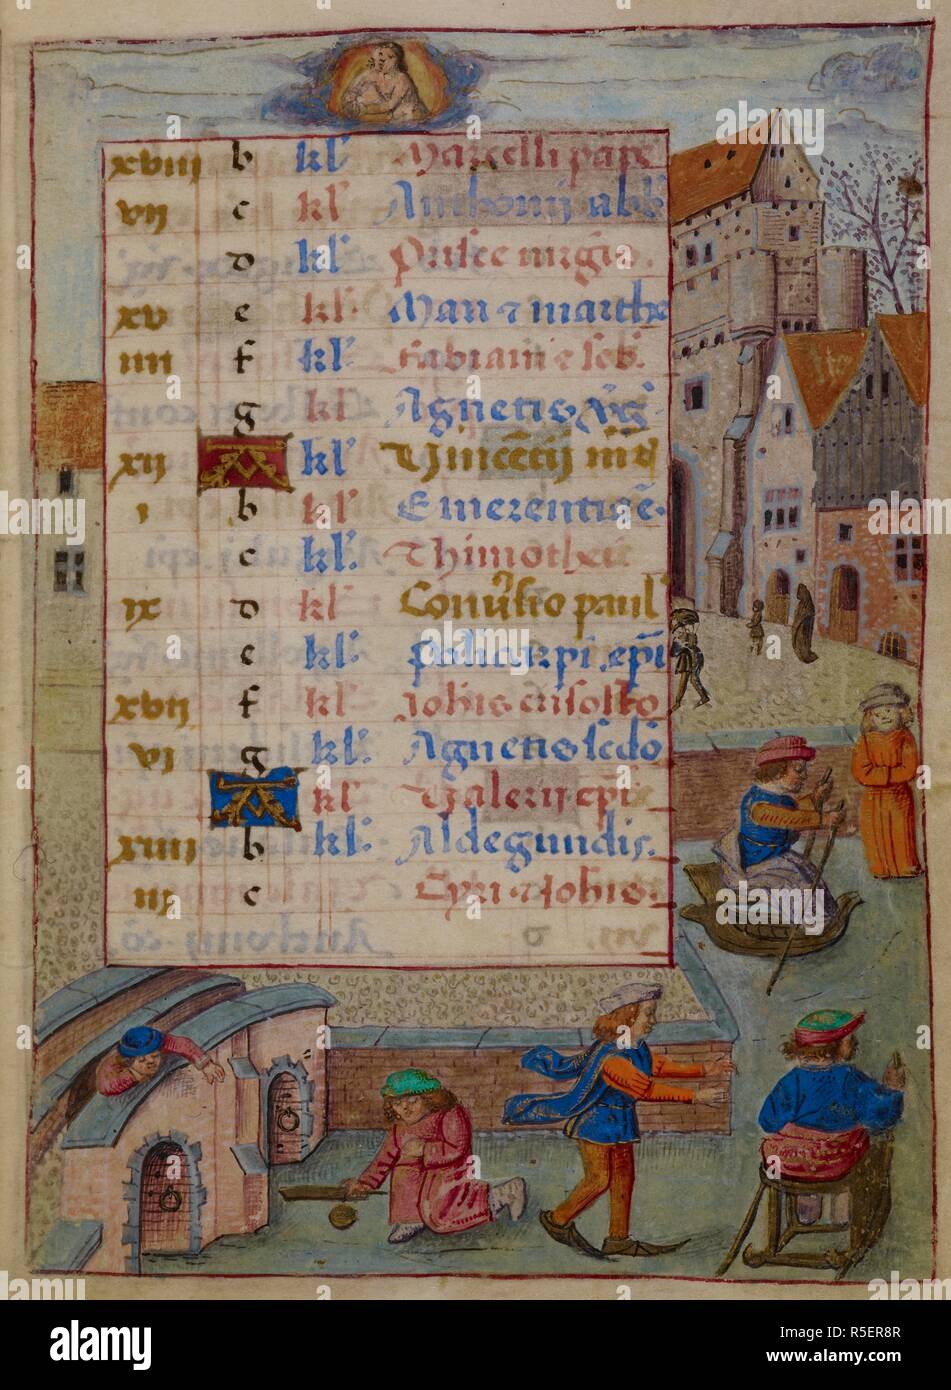 xviii b kl' Marcelli pape
vii c kl Anthonij abb
d kl' Prisce virgis.
xv e kl' Mari ⁊ marthe
iiii f kl' Fabiani e seb.
g kl Agnetis vg'
xii A kl' Vincētij mr̄
i b kl Emerentiē.
c kl' Thimothei
ix d kl Conv'sio paul'
e kl' policarpi. ep̄i
xvii f kl Johis crisosto
vi g kl'. Agnetis secd̄o
A kl' Valerij ep̄i
xiiii b kl'. Aldegundis.
iii c Cyri ⁊ Johis.
a alamy stock photo
alamy
Image ID: R5ER8R
www.alamy.com